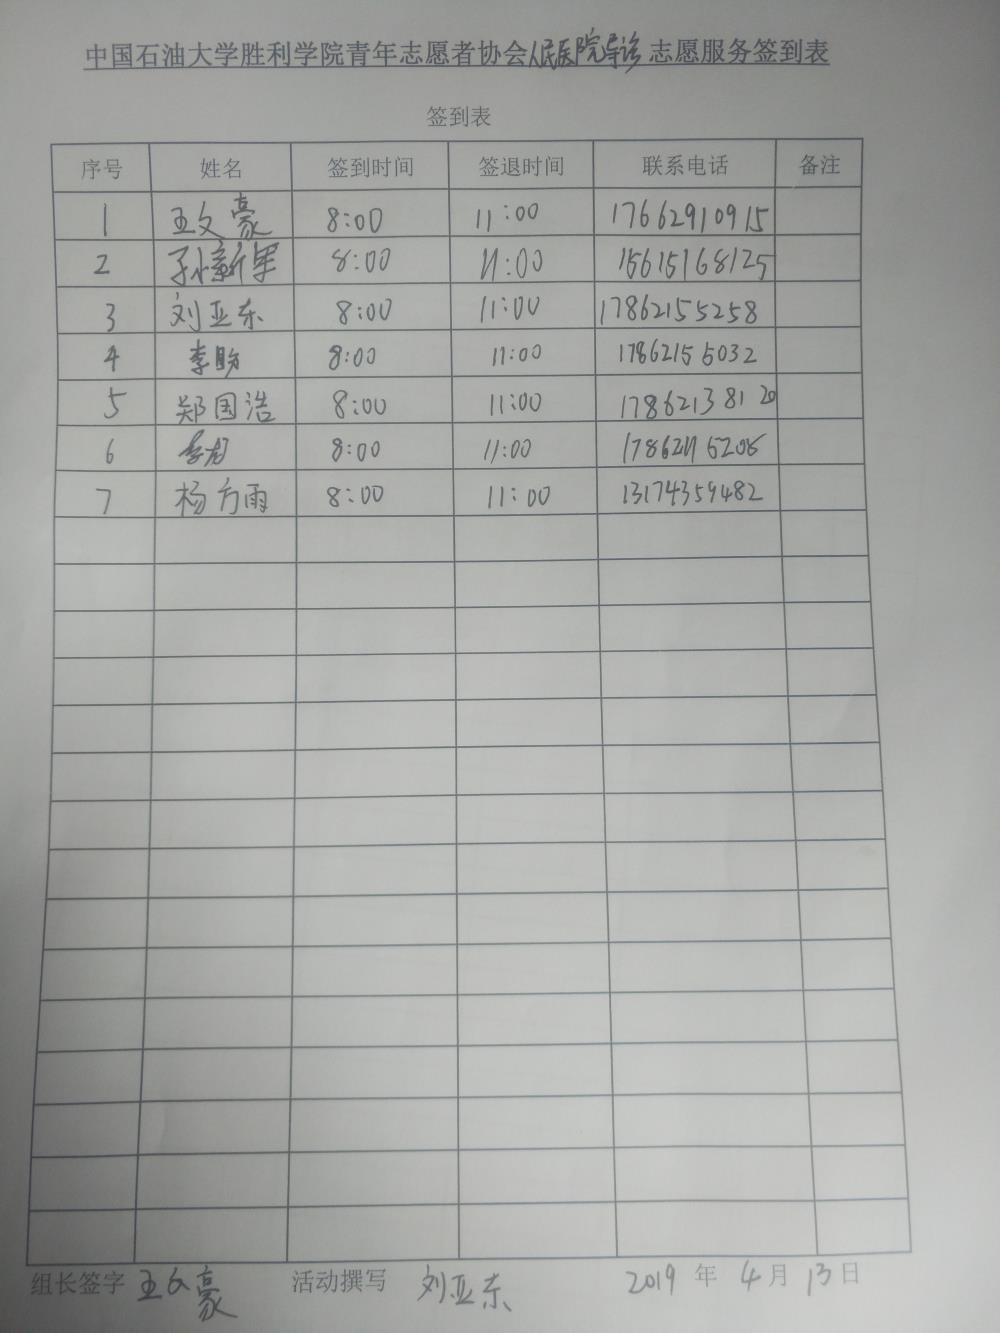 中国石油大学胜利学院青年志愿者协会人民医院导诊志愿服务签到表
签到表
序号 姓名 签到时间 签退时间 联系电话 备注
1 王文豪 8:00 11:00 17662910915
2 孙新军 8:00 11:00 15615168125
3 刘亚东 8:00 11:00 17862155258
4 李盼 8:00 11:00 17862155032
5 郑国浩 8:00 11:00 17862138120
6 8:00 11:00
7 杨方雨 8:00 11:00 13174359482
组长签字 王文豪 活动撰写 刘亚东 2019 年 4 月 13 日